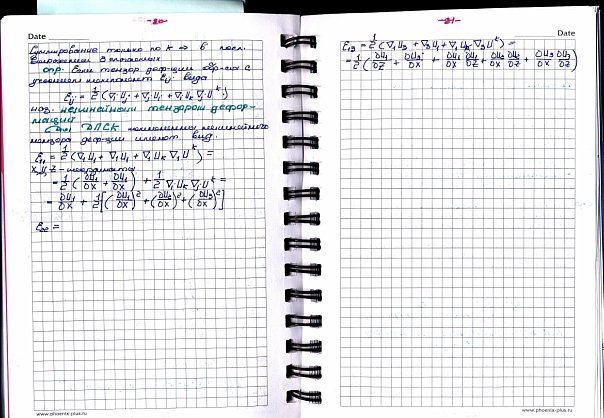 -20-
Date
Суммирование только по k ⇒ в посл.
выражении 3 слагаемых
опр. Если тензор деф-ции обр-ся с
помощью компонент εij вида
εij = 1/2 (∇i Uj + ∇j Ui + ∇i Uk ∇j U^k)
наз. нелинейным тензором дефор-
маций
Для ДПСК компоненты нелинейного
тензора деф-ции имеют вид:
ε11 = 1/2 (∇1 U1 + ∇1 U1 + ∇1 Uk ∇1 U^k) =
x, y, z - координаты
= 1/2 (∂U1/∂x + ∂U1/∂x) + 1/2 ∇1 Uk ∇1 U^k =
= ∂U1/∂x + 1/2 [(∂U1/∂x)^2 + (∂U2/∂x)^2 + (∂U3/∂x)^2]
ε22 =
www.phoenix-plus.ru
-21-
Date
ε13 = 1/2 (∇1 U3 + ∇3 U1 + ∇1 Uk ∇3 U^k) =
= 1/2 (∂U1/∂z + ∂U3/∂x + ∂U1/∂x ∂U1/∂z + ∂U2/∂x ∂U2/∂z + ∂U3/∂x ∂U3/∂z)
www.phoenix-plus.ru